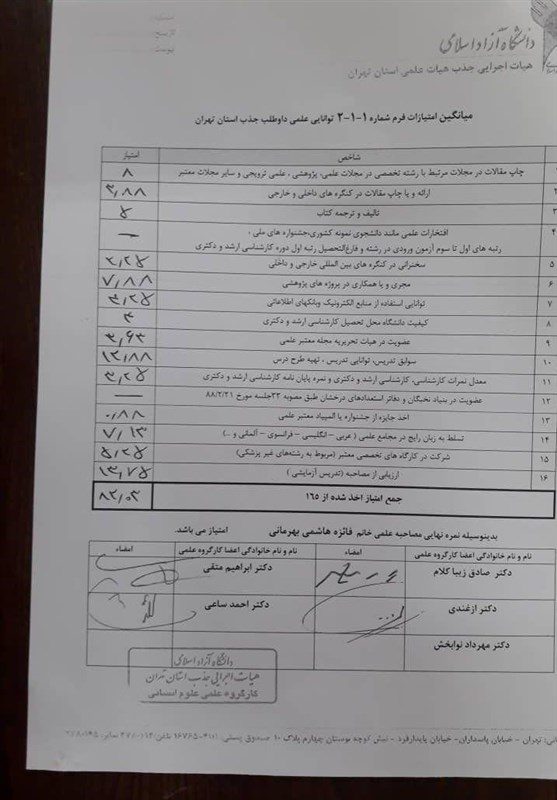 شماره
تاریخ
پیوست
دانشگاه آزاد اسلامی
هیات اجرایی جذب هیات علمی استان تهران
میانگین امتیازات فرم شماره ۱-۱-۲ توانایی علمی داوطلب جذب استان تهران
شاخص امتیاز
چاپ مقالات در مجلات مرتبط با رشته تخصصی در مجلات علمی، پژوهشی ، علمی ترویجی و سایر مجلات معتبر ۸
۲ ارائه و یا چاپ مقالات در کنگره های داخلی و خارجی ۳,۸۸
۳ تالیف و ترجمه کتاب ۵
۴ افتخارات علمی مانند دانشجوی نمونه کشوری،جشنواره های ملی ،
رتبه های اول تا سوم آزمون ورودی در رشته و فارغ‌التحصیل رتبه اول دوره کارشناسی ارشد و دکتری —
۵ سخنرانی در کنگره های بین المللی خارجی و داخلی ۲,۲۵
۶ مجری و یا همکاری در پروژه های پژوهشی ۷,۸۸
۷ توانایی استفاده از منابع الکترونیک وبانکهای اطلاعاتی ۳,۲۵
۸ کیفیت دانشگاه محل تحصیل کارشناسی ارشد و دکتری ۳
۹ عضویت در هیات تحریریه مجله معتبر علمی ۳,۶۳
۱۰ سوابق تدریس، توانایی تدریس ، تهیه طرح درس ۱۲,۸۸
۱۱ معدل نمرات کارشناسی، کارشناسی ارشد و دکتری و نمره پایان نامه کارشناسی ارشد و دکتری ۳,۲۵
۱۲ عضویت در بنیاد نخبگان و دفاتر استعدادهای درخشان طبق مصوبه ۳۲جلسه مورخ ۸۸/۲/۲۱ —
۱۳ اخذ جایزه از جشنواره یا المپیاد معتبر علمی ۰,۸۸
۱۴ تسلط به زبان رایج در مجامع علمی ( عربی – انگلیسی – فرانسوی – آلمانی و ..) ۷,۱۳
۱۵ شرکت در کارگاه های تخصصی معتبر (مربوط به رشته‌های غیر پزشکی) ۵,۲۵
۱۶ ارزیابی از مصاحبه (تدریس آزمایشی ) ۱۳,۷۵
جمع امتیاز اخذ شده از ۱۶۵ ۸۲,۰۳
بدینوسیله نمره نهایی مصاحبه علمی خانم فائزه هاشمی بهرمانی امتیاز می باشد.
نام و نام خانوادگی اعضا کارگروه علمی امضاء نام و نام خانوادگی اعضا کارگروه علمی امضاء
دکتر صادق زیبا کلام دکتر ابراهیم متقی
دکتر ازغندی دکتر احمد ساعی
دکتر مهرداد نوابخش
دانشگاه آزاد اسلامی
هیات اجرایی جذب استان تهران
کارگروه علمی علوم انسانی
تهران - خیابان پاسداران- خیابان پایدارفرد - نبش کوچه بوستان چهارم پلاک ۱۰ صندوق پستی